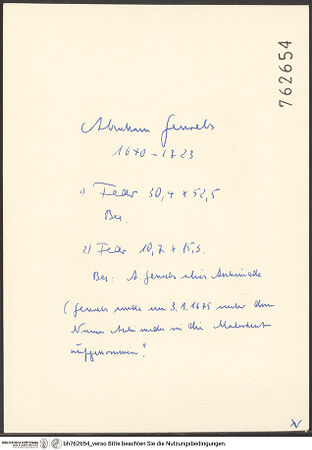 762654
Abraham Genoels
1640 - 1723
1) Feder 30,4 x 52,5
Bez.
2) Feder 10,7 x 15,3.
Bez: A. Genoels alias Archimede.
(Genoels wurde am 3.1.1675 unter dem
Namen Archimedes in die Malerbent
aufgenommen".
bh762654_verso Bitte beachten Sie die Nutzungsbedingungen.